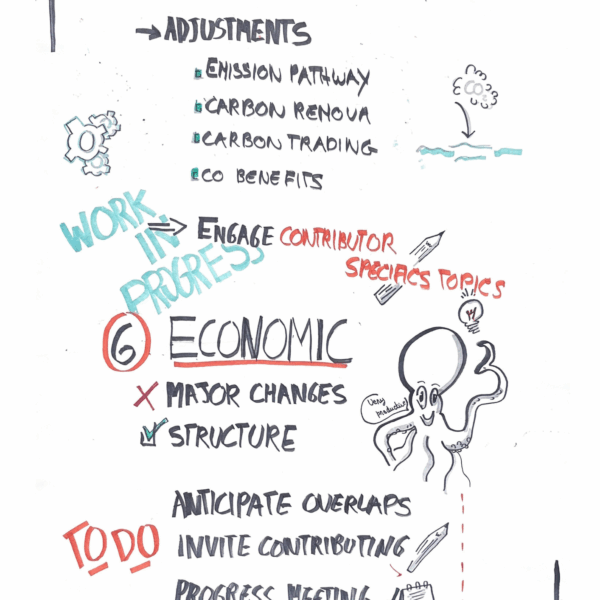 → ADJUSTMENTS
EMISSION PATHWAY
CARBON RENOVA
CARBON TRADING
CO BENEFITS
CO₂
WORK
IN
PROGRESS
⇒ ENGAGE CONTRIBUTOR
SPECIFICS TOPICS
6 ECONOMIC
MAJOR CHANGES
STRUCTURE
Very
productive
ANTICIPATE OVERLAPS
TO DO
INVITE CONTRIBUTING
PROGRESS MEETING